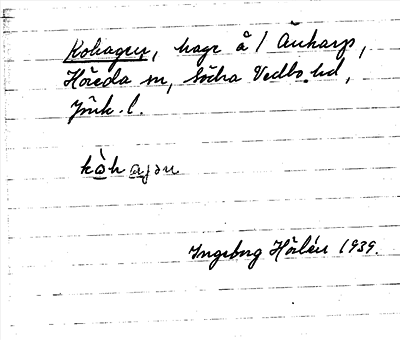 Kohagen, hage å / Änharp,
Höreda sn, Södra Vedbo hd,
Jönk. l.
kòhagən
Ingeborg Hörlén 1939.